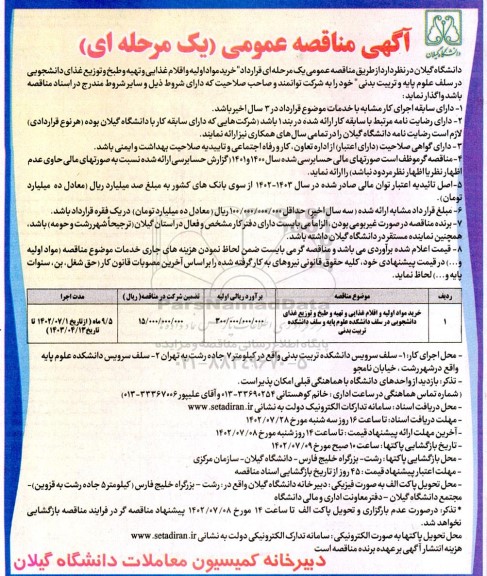 آگهی مناقصه عمومی (یک مرحله ای)
دانشگاه گیلان
دانشگاه گیلان در نظر دارد از طریق مناقصه عمومی یک مرحله ای قرارداد "خرید مواد اولیه و اقلام غذایی و تهیه و طبخ و توزیع غذای دانشجویی
در سلف علوم پایه و تربیت بدنی" خود را به شرکت توانمند و صاحب صلاحیت که دارای شروط ذیل و سایر شروط مندرج در اسناد مناقصه
باشد واگذار نماید:
۱- دارای سابقه اجرای کار مشابه با خدمات موضوع قرارداد در ۳ سال اخیر باشد.
۲- دارای رضایت نامه مرتبط با سابقه کار ارائه شده در بند۱ باشد (شرکت هایی که دارای سابقه کار با دانشگاه گیلان بوده (هر نوع قراردادی)
لازم است رضایت نامه دانشگاه گیلان را در تمامی سال های همکاری نیز ارائه نمایند.
۳- دارای گواهی صلاحیت (دارای اعتبار) از اداره تعاون، کار و رفاه اجتماعی و تاییدیه صلاحیت بهداشت و ایمنی باشد.
۴- مناقصه گر موظف است صورتهای مالی حسابرسی شده سال ۱۴۰۰ و ۱۴۰۱( گزارش حسابرسی ارائه شده نسبت به صورتهای مالی حاوی عدم
اظهار نظر یا اظهار نظر مردود نباشد) را ارائه نماید.
۵- اصل تائیدیه اعتبار توان مالی صادر شده در سال ۱۴۰۳-۱۴۰۲ از سوی بانک های کشور به مبلغ صد میلیارد ریال (معادل ده میلیارد
تومان).
۶- مبلغ قرارداد مشابه ارائه شده (سه سال اخیر) حداقل ۱۰۰/۰۰۰/۰۰۰/۰۰۰ریال (معادل ده میلیارد تومان) در یک فقره قرارداد باشد.
۷- برنده مناقصه در صورت غیربومی بودن، الزاما می بایست دارای دفتر کار مشخص و فعال در استان گیلان (ترجیحاً شهر رشت و حومه) باشد،
همچنین نماینده مستقر در دانشگاه گیلان داشته باشد.
۸- قیمت اعلام شده برآوردی می باشد و مناقصه گر می بایست ضمن لحاظ نمودن هزینه های جاری خدمات موضوع مناقصه (مواد اولیه
و...) در قیمت پیشنهادی خود، کلیه حقوق قانونی نیروهای به کار گرفته شده را بر اساس آخرین مصوبات قانون کار (حق شغل، بن، سنوات
پایه و...) لحاظ نماید.
ردیف موضوع مناقصه برآورد ریالی اولیه تضمین شرکت در مناقصه( ریال ) مدت اجرا
۱ خرید مواد اولیه و اقلام غذایی و تهیه و طبخ و توزیع غذای دانشجویی در سلف دانشکده علوم پایه و سلف دانشکده تربیت بدنی ۳۰۰/۰۰۰/۰۰۰/۰۰۰ ۱۵/۰۰۰/۰۰۰/۰۰۰ ۹/۵ ماه ( از تاریخ ۱۴۰۲/۰۷/۱ تا تاریخ ۱۴۰۳/۰۴/۱۳ )
ParsNamadData
۰۲۱-۸۸۳۴۹۶۷۰-۵
- محل اجرای کار: ۱- سلف سرویس دانشکده تربیت بدنی واقع در کیلومتر ۷ جاده رشت به تهران ۲- سلف سرویس دانشکده علوم پایه
واقع در شهر رشت ، خیابان نامجو
- تذکر: بازدید از واحدهای دانشگاه با هماهنگی قبلی امکان پذیر است.
(شماره تماس هماهنگی در ساعت اداری : خانم کوهستانی ۳۳۶۹۰۲۵۴-۰۱۳ و آقای علیپور ۳۳۳۶۷۰۰۶-۰۱۳)
- محل دریافت اسناد: سامانه تدارکات الکترونیک دولت به نشانی www.setadiran.ir
- مهلت دریافت اسناد: تا ساعت ۱۶ روز سه شنبه مورخ ۱۴۰۲/۰۷/۲۸
- آخرین مهلت ارائه پیشنهاد قیمت : تا ساعت ۱۴ روز شنبه مورخ ۱۴۰۲/۰۷/۰۸
- تاریخ بازگشایی پاکتها: ساعت ۱۰ صبح مورخ ۱۴۰۲/۰۷/۰۹
- محل بازگشایی پاکتها: رشت- بزرگراه خلیج فارس - دانشگاه گیلان- سازمان مرکزی
- مهلت اعتبار پیشنهاد قیمت : ۴۵ روز از تاریخ بازگشایی اسناد مناقصه
- محل تحویل پاکت الف به صورت فیزیکی: دبیرخانه دانشگاه گیلان واقع در : رشت - بزرگراه خلیج فارس ( کیلومتر ۵ جاده رشت به قزوین)-
مجتمع دانشگاه گیلان - دفتر معاونت اداری و مالی دانشگاه
* تذکر: در صورت عدم بارگزاری و تحویل پاکت الف تا ساعت ۱۴ مورخ ۱۴۰۲/۰۷/۰۸ پیشنهاد مناقصه گر در فرایند مناقصه بازگشایی
نخواهد شد.
محل تحویل پاکتها به صورت الکترونیکی : سامانه تدارک الکترونیکی دولت به نشانی www.setadiran.ir
هزینه انتشار آگهی بر عهده برنده مناقصه است
دبیرخانه کمیسیون معاملات دانشگاه گیلان